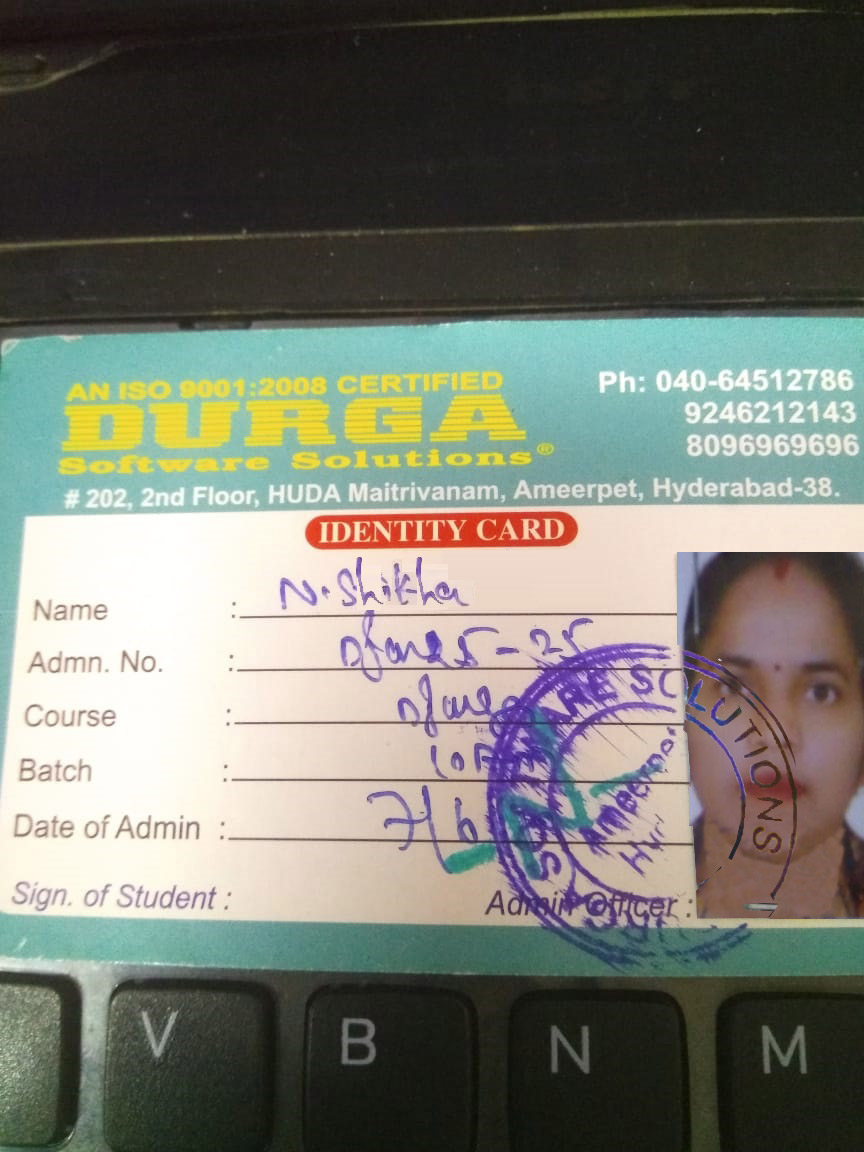 AN ISO 9001:2008 CERTIFIED
DURGA
Software Solutions®
Ph: 040-64512786
9246212143
8096969696
# 202, 2nd Floor, HUDA Maitrivanam, Ameerpet, Hyderabad-38.
IDENTITY CARD
Name : N. Shikha
Admn. No. :
Course :
Batch :
Date of Admin : 7/6
Sign. of Student :
Admin Officer :
SOLUTIONS
V B N M